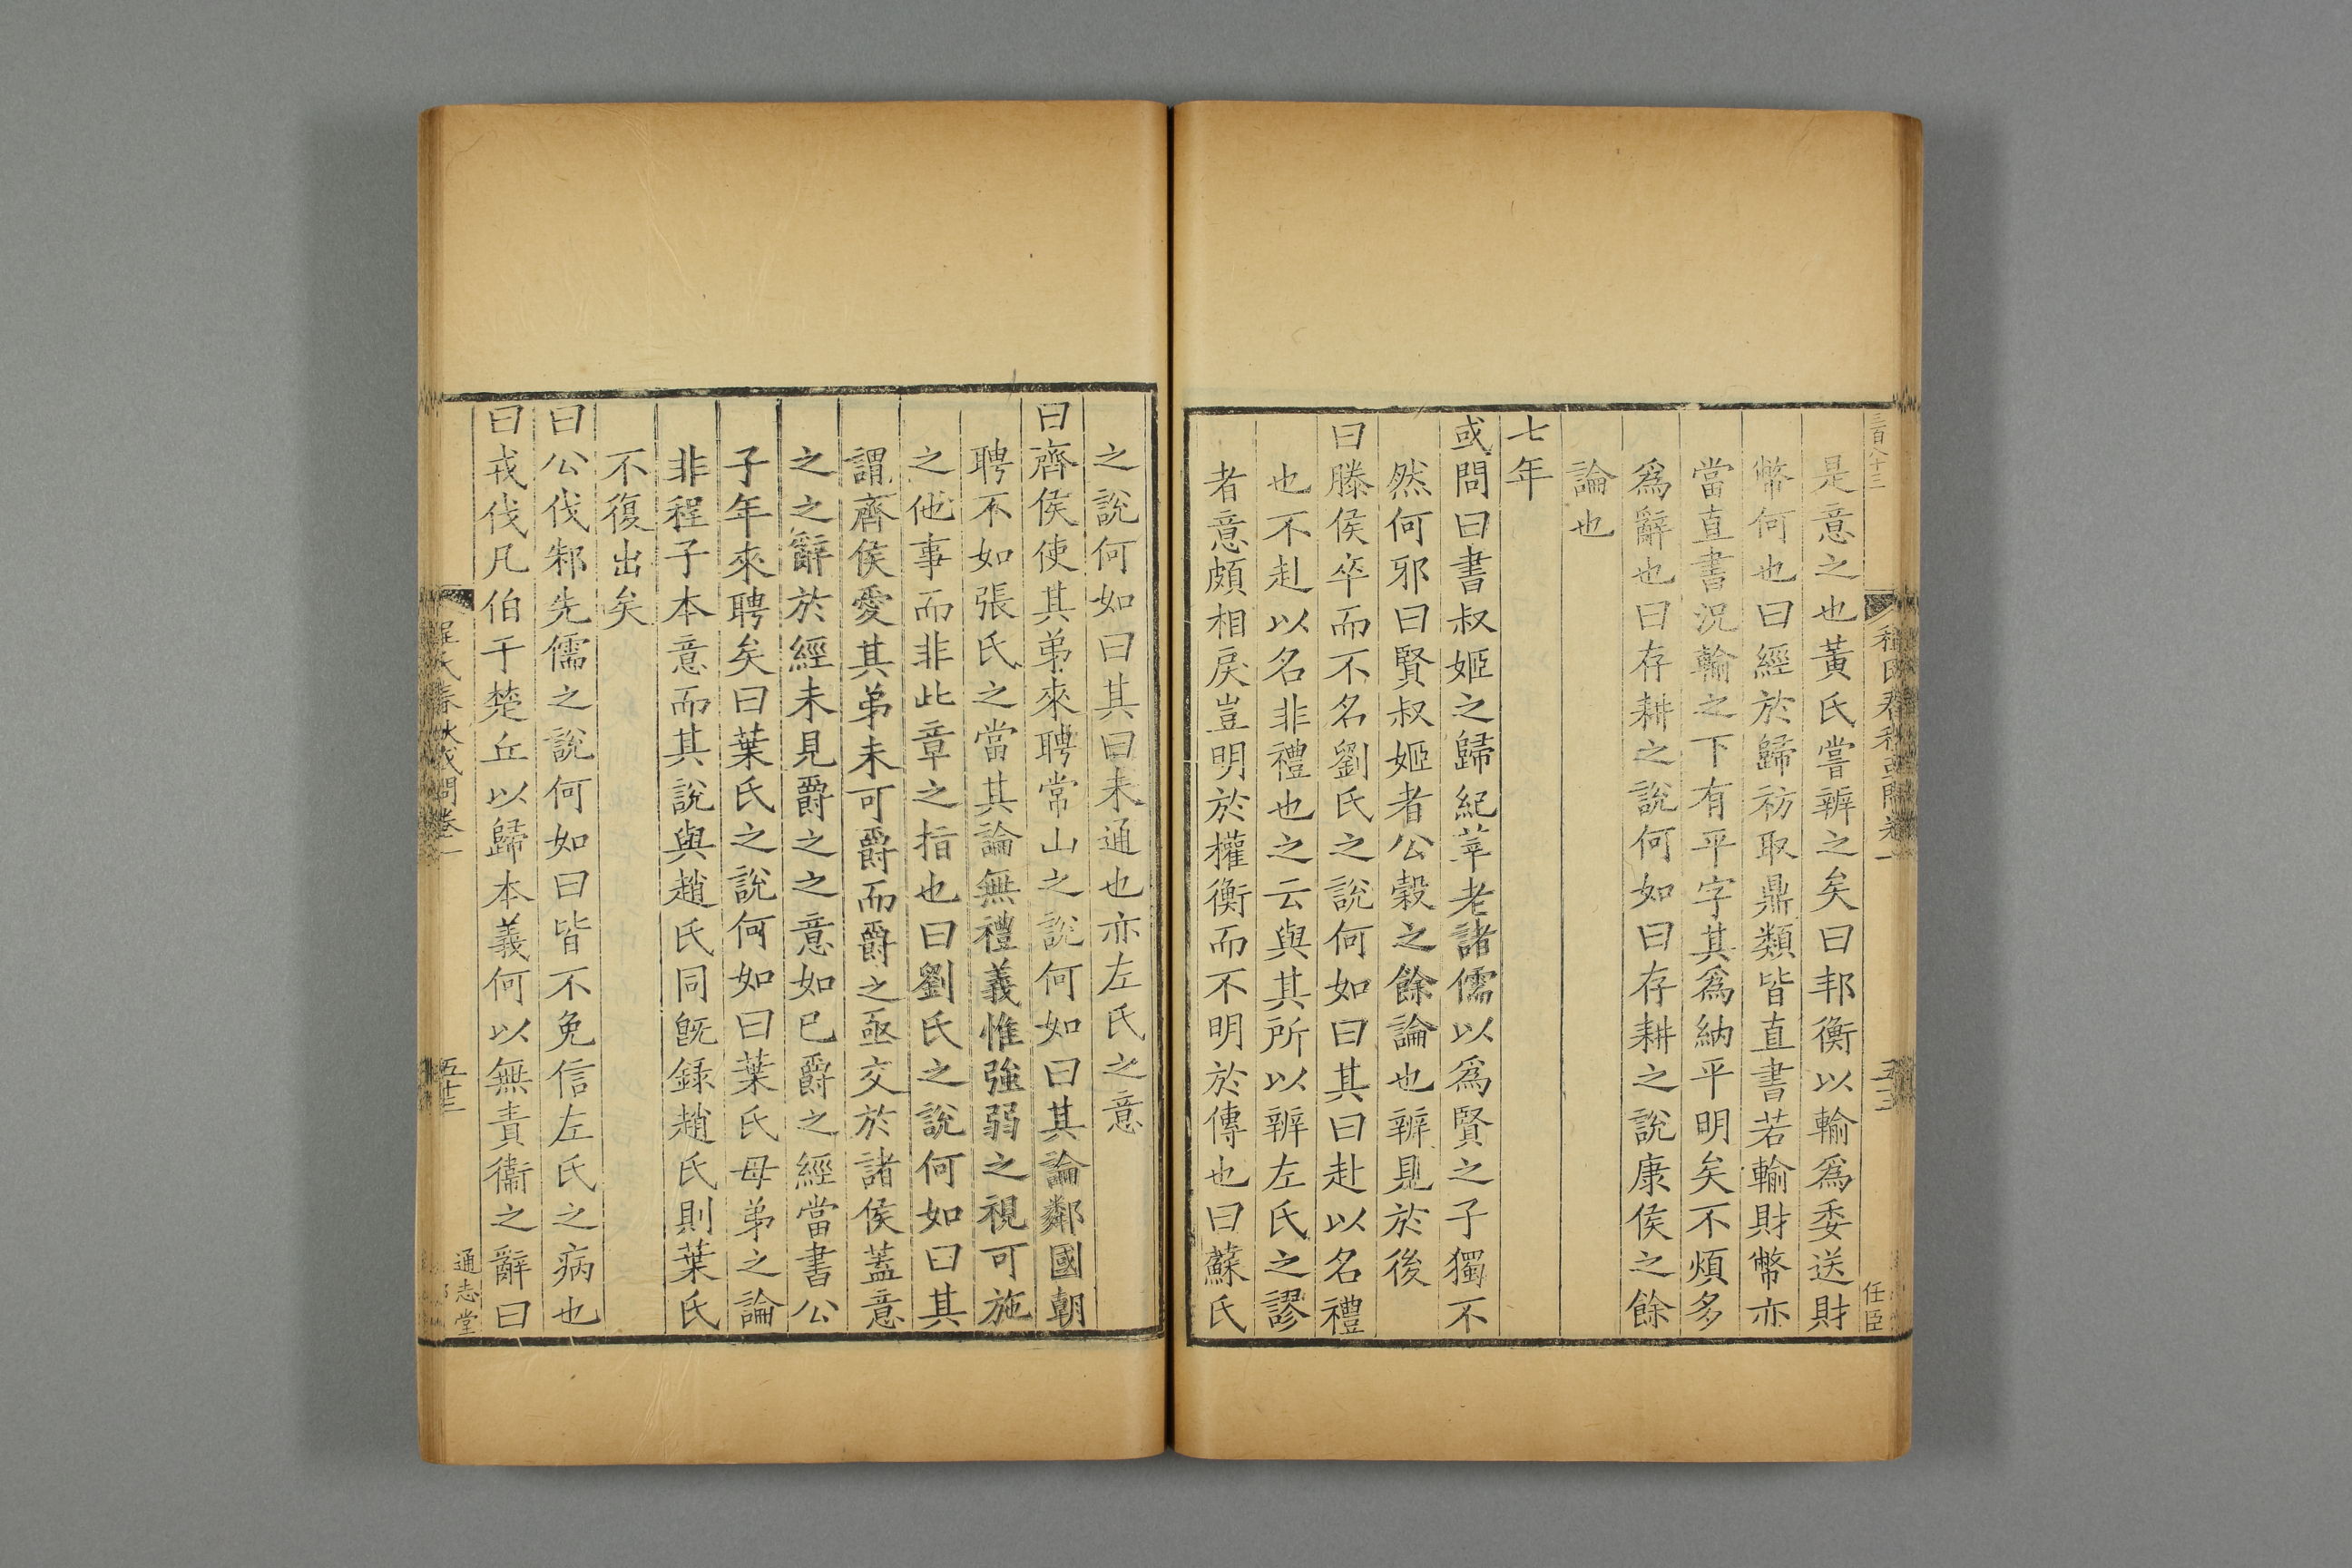 三百八十三
程氏春秋或問卷一
任臣
是意之也黃氏嘗辨之矣曰邦衡以輸爲委送財
幣何也曰經於歸祊取鼎類皆直書若輸財幣亦
當直書況輸之下有平字其爲納平明矣不煩多
爲辭也曰存耕之說何如曰存耕之說康侯之餘
論也
七年
或問曰書叔姬之歸紀莘老諸儒以爲賢之子獨不
然何邪曰賢叔姬者公穀之餘論也辨見於後
曰滕侯卒而不名劉氏之說何如曰其曰赴以名禮
也不赴以名非禮也之云與其所以辨左氏之謬
者意頗相戾豈明於權衡而不明於傳也曰蘇氏
之說何如曰其曰未通也亦左氏之意
曰齊侯使其弟來聘常山之說何如曰其論鄰國朝
聘不如張氏之當其論無禮義惟強弱之視可施
之他事而非此章之指也曰劉氏之說何如曰其
謂齊侯愛其弟未可爵而爵之亟交於諸侯蓋意
之之辭於經未見爵之之意如已爵之經當書公
子年來聘矣曰葉氏之說何如曰葉氏母弟之論
非程子本意而其說與趙氏同旣録趙氏則葉氏
不復出矣
曰公伐邾先儒之說何如曰皆不免信左氏之病也
曰戎伐凡伯于楚丘以歸本義何以無責衞之辭曰
程氏春秋或問卷一
五十三
通志堂